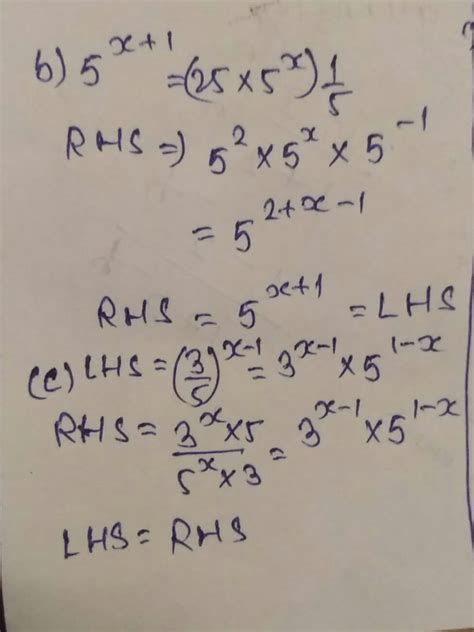 b) 5^{x+1} = (25 × 5^x) 1/5
RHS ⇒ 5^2 × 5^x × 5^{-1}
= 5^{2+x-1}
RHS = 5^{x+1} = LHS
(c) LHS = (3/5)^{x-1} = 3^{x-1} × 5^{1-x}
RHS = (3^x × 5)/(5^x × 3) = 3^{x-1} × 5^{1-x}
LHS = RHS